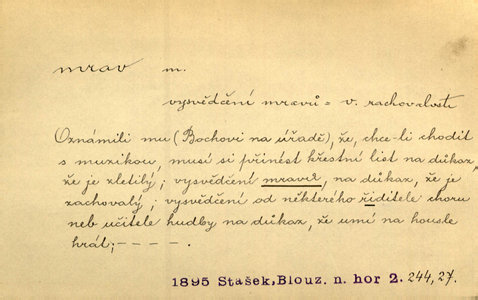 mrav m.
vysvědčení mravů = v. zachovalosti
Oznámili mu (Bochovi na úřadě), že, chce-li chodit
s muzikou, musí si přinést křestní list na důkaz,
že je zletilý; vysvědčení mravů, na důkaz, že je
zachovalý; vysvědčení od některého řiditele choru
neb učitele hudby na důkaz, že umí na housle
hrát; – – – – .
1895 Stašek, Blouz. n. hor 2. 244, 27.